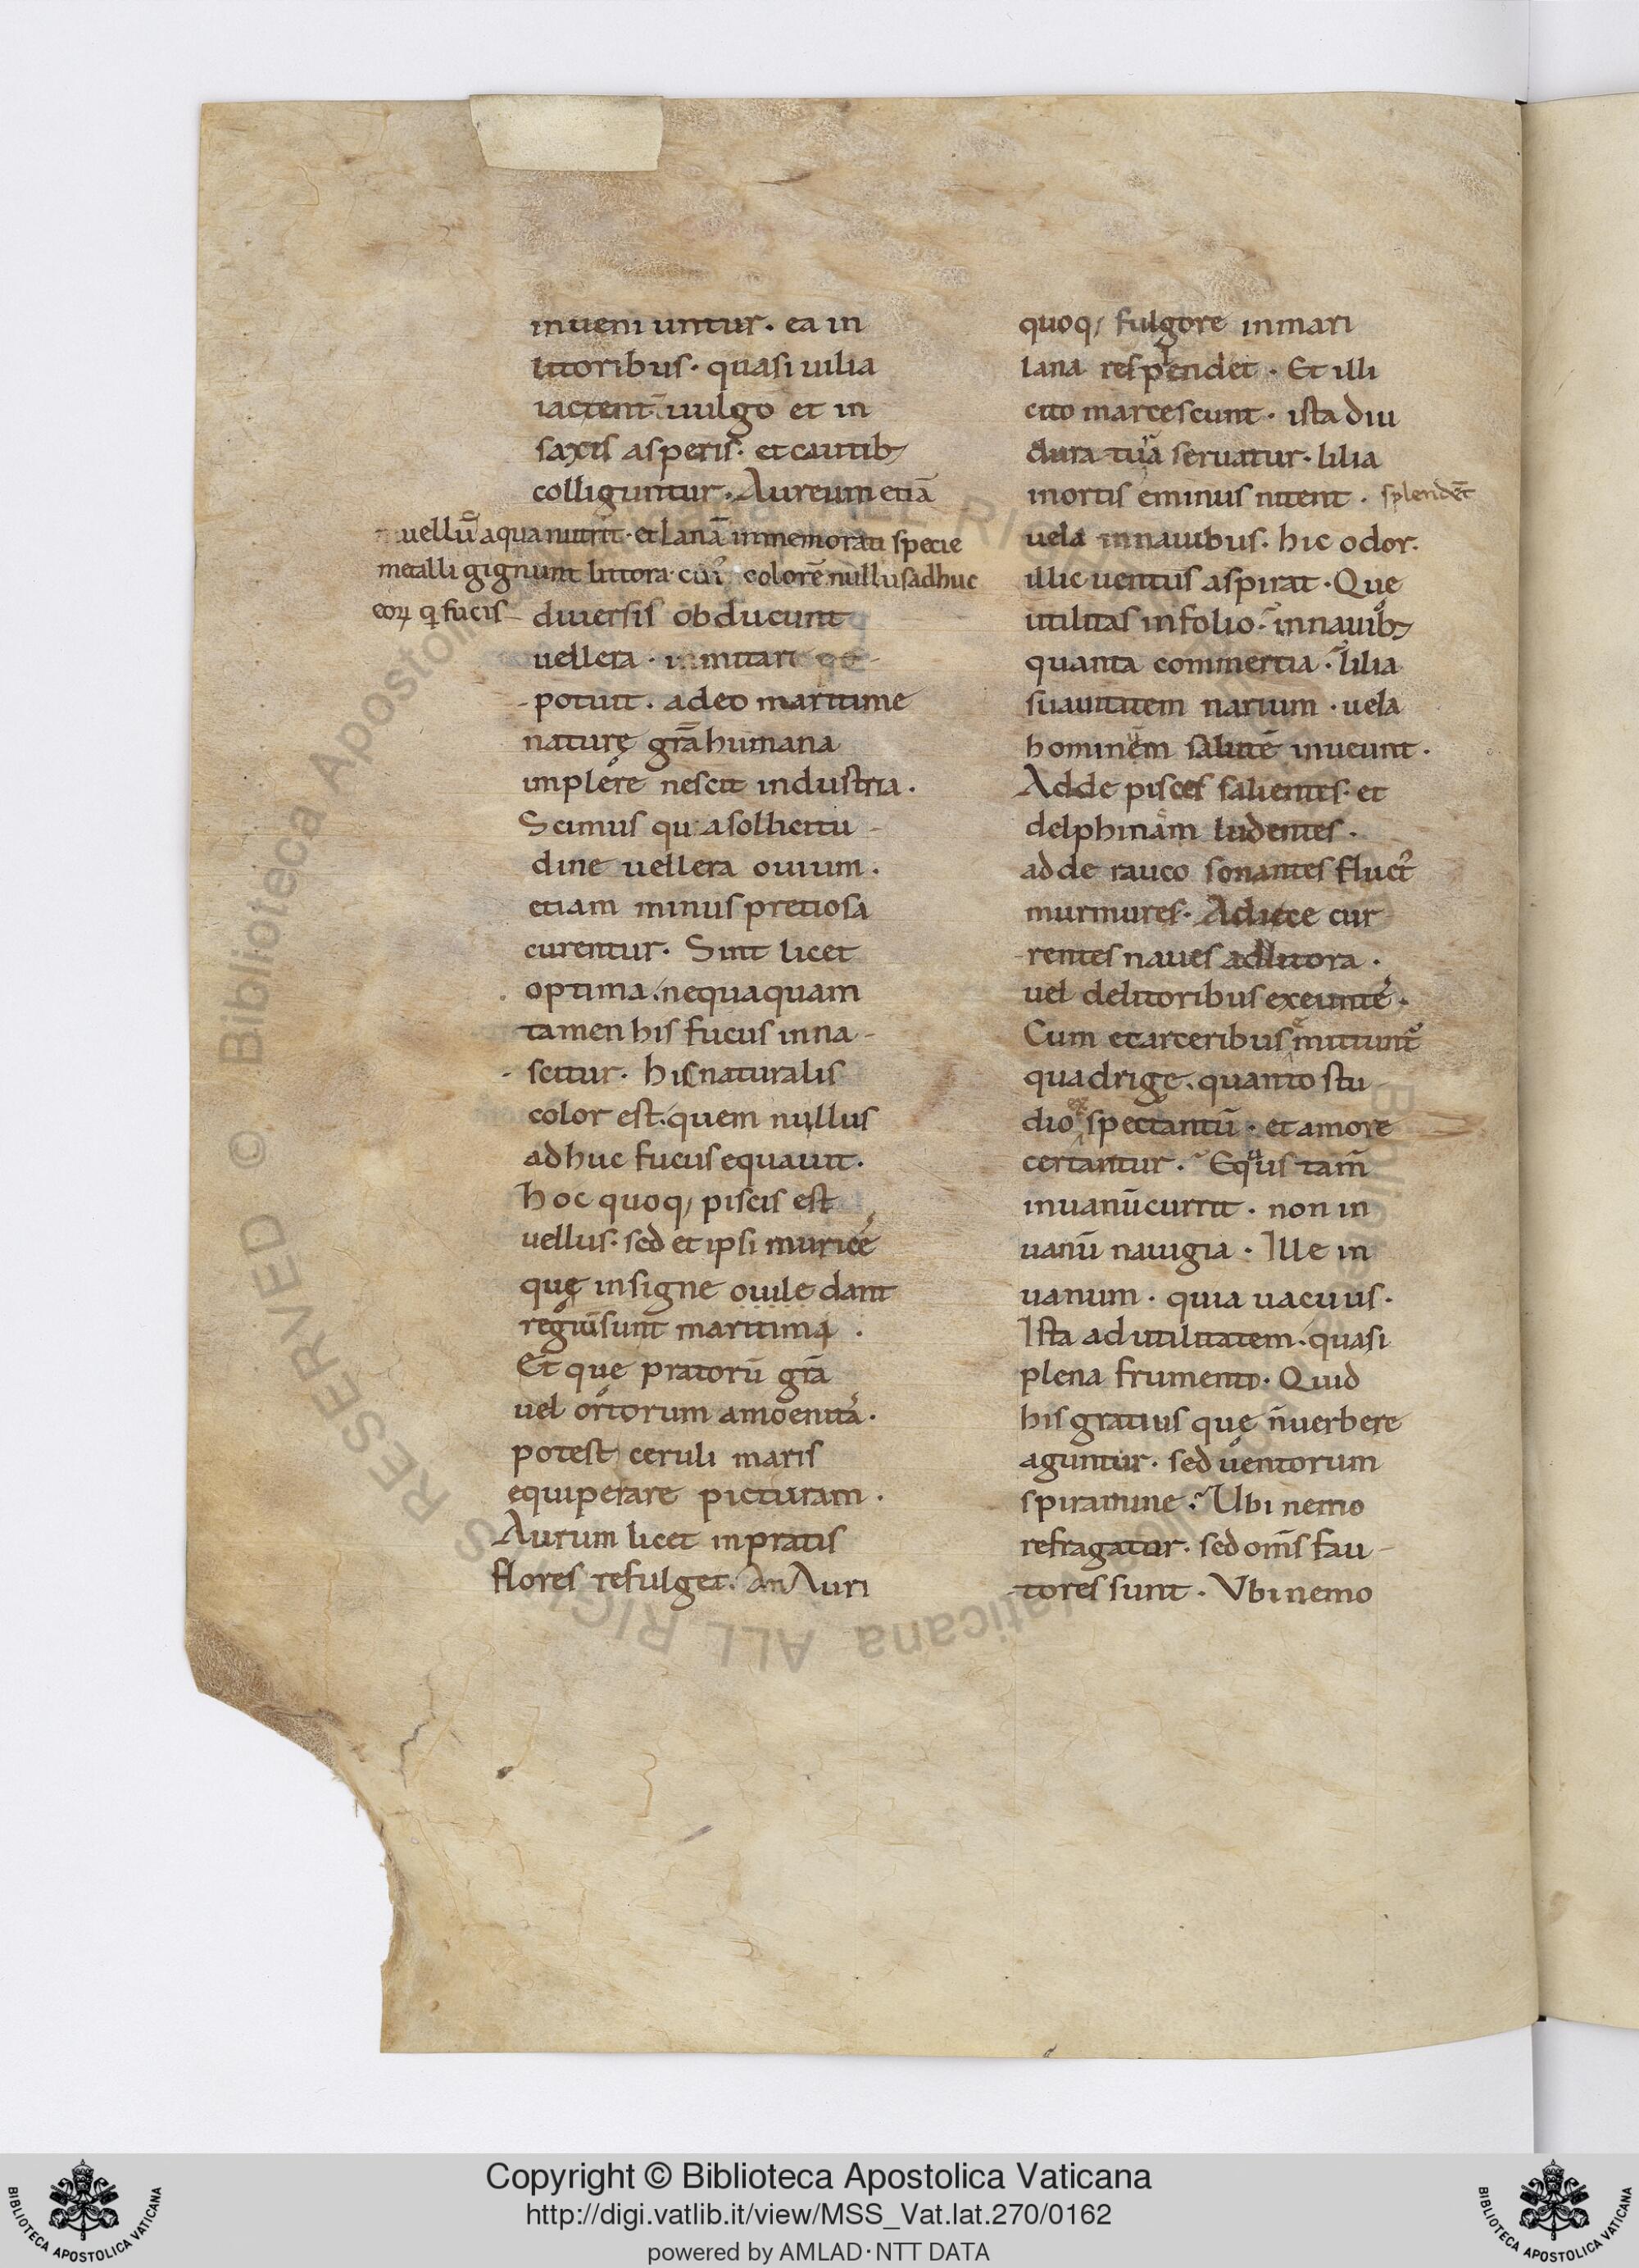 inueni untur · ea in
litoribus · quasi uilia
iactent᷑ uulgo et in
saxis asperis · et cautib;
colliguntur · Aureum etiā
uellū aqua nutrit · et lanā inmemorati specie
metalli gignunt littora · cui᷒ colorē nullus adhuc
eoꝝ q̇ fucis diuersis obducunt
uellera · inmitari
potuit · adeo maritime
naturę grā humana
implere nescit industria ·
Scimus qua sollicitu
dine uellera ouium ·
etiam minus pretiosa
curentur · Sint licet
optima · nequaquam
tamen his fucus inna-
scitur · his naturalis
color est · quem nullus
adhuc fucus equauit ·
hoc quoq; piscis est
uellus · sed et ipsi murice᷒
quę insigne ouile dant
regiū sunt maritima ·
Et que pratorū grā
uel ortorum amoenita᷒ ·
potest ceruli maris
equiperare picturam ·
Aurum licet in pratis
flores refulget · An Auri
quoq; fulgore in mari
lana resplendet · Et illi
cito marcescunt · ista diu
duratura seruatur · lilia
in ortis eminus nitent · splendēt
uela in nauibus · hic odor ·
illic uentus aspirat · Que
utilitas in folio · in nauib;
quanta commertia · lilia
suauitatem narium · uela
hominem salutē inueunt ·
Adde pisces salientes · et
delphinam ludentes ·
adde rauco sonantes fluct᷒
murmures · Adiece cur
rentes naues ad litora ·
uel de litoribus exeunte᷒ ·
Cum e carceribus mittunt᷑
quadrige · quanto stu
dio exspectantū · et amore
certantur · Equus tam̄
in uanū currit · non in
uanū nauigia · Ille in
uanum · quia uacuus ·
Ista ad utilitatem · quasi
plena frumento · Quid
his gratius quę n̄ uerbere
aguntur · sed uentorum
spiramine · Ubi nemo
refragatur · sed om̄s fau-
tores sunt · Vbi nemo
Copyright © Biblioteca Apostolica Vaticana
http://digi.vatlib.it/view/MSS_Vat.lat.270/0162
powered by AMLAD·NTT DATA